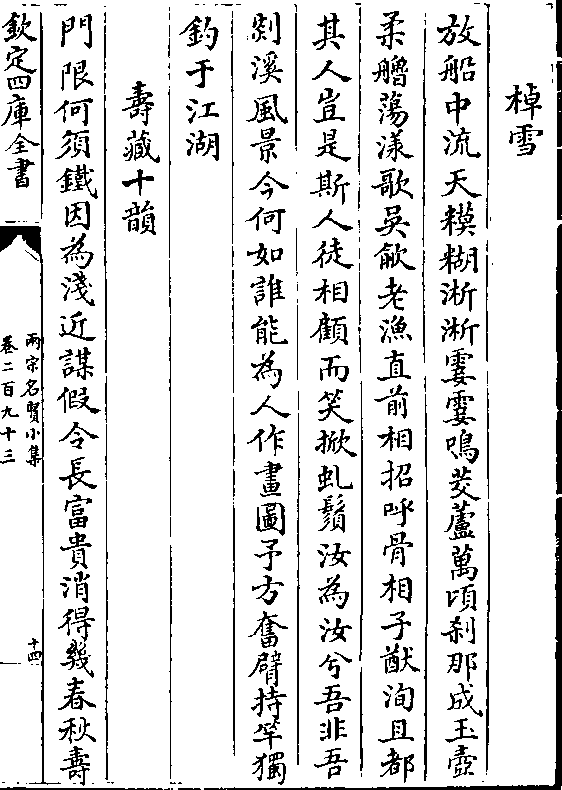 棹雪
放船中流天糢糊淅淅霎霎鳴茭蘆萬頃刹那成玉壺
柔艪蕩漾歌吳歈老漁直前相招呼骨相子猷洵且都
其人豈是斯人徒相顧而笑掀虬鬚汝為汝兮吾非吾
剡溪風景今何如誰能為人作畫圖予方奮臂持竿獨
釣于江湖
壽藏十韻
門限何須鐵因為淺近謀假令長富貴消得幾春秋壽
欽定四庫全書
兩宋名賢小集
卷二百九十三
十四